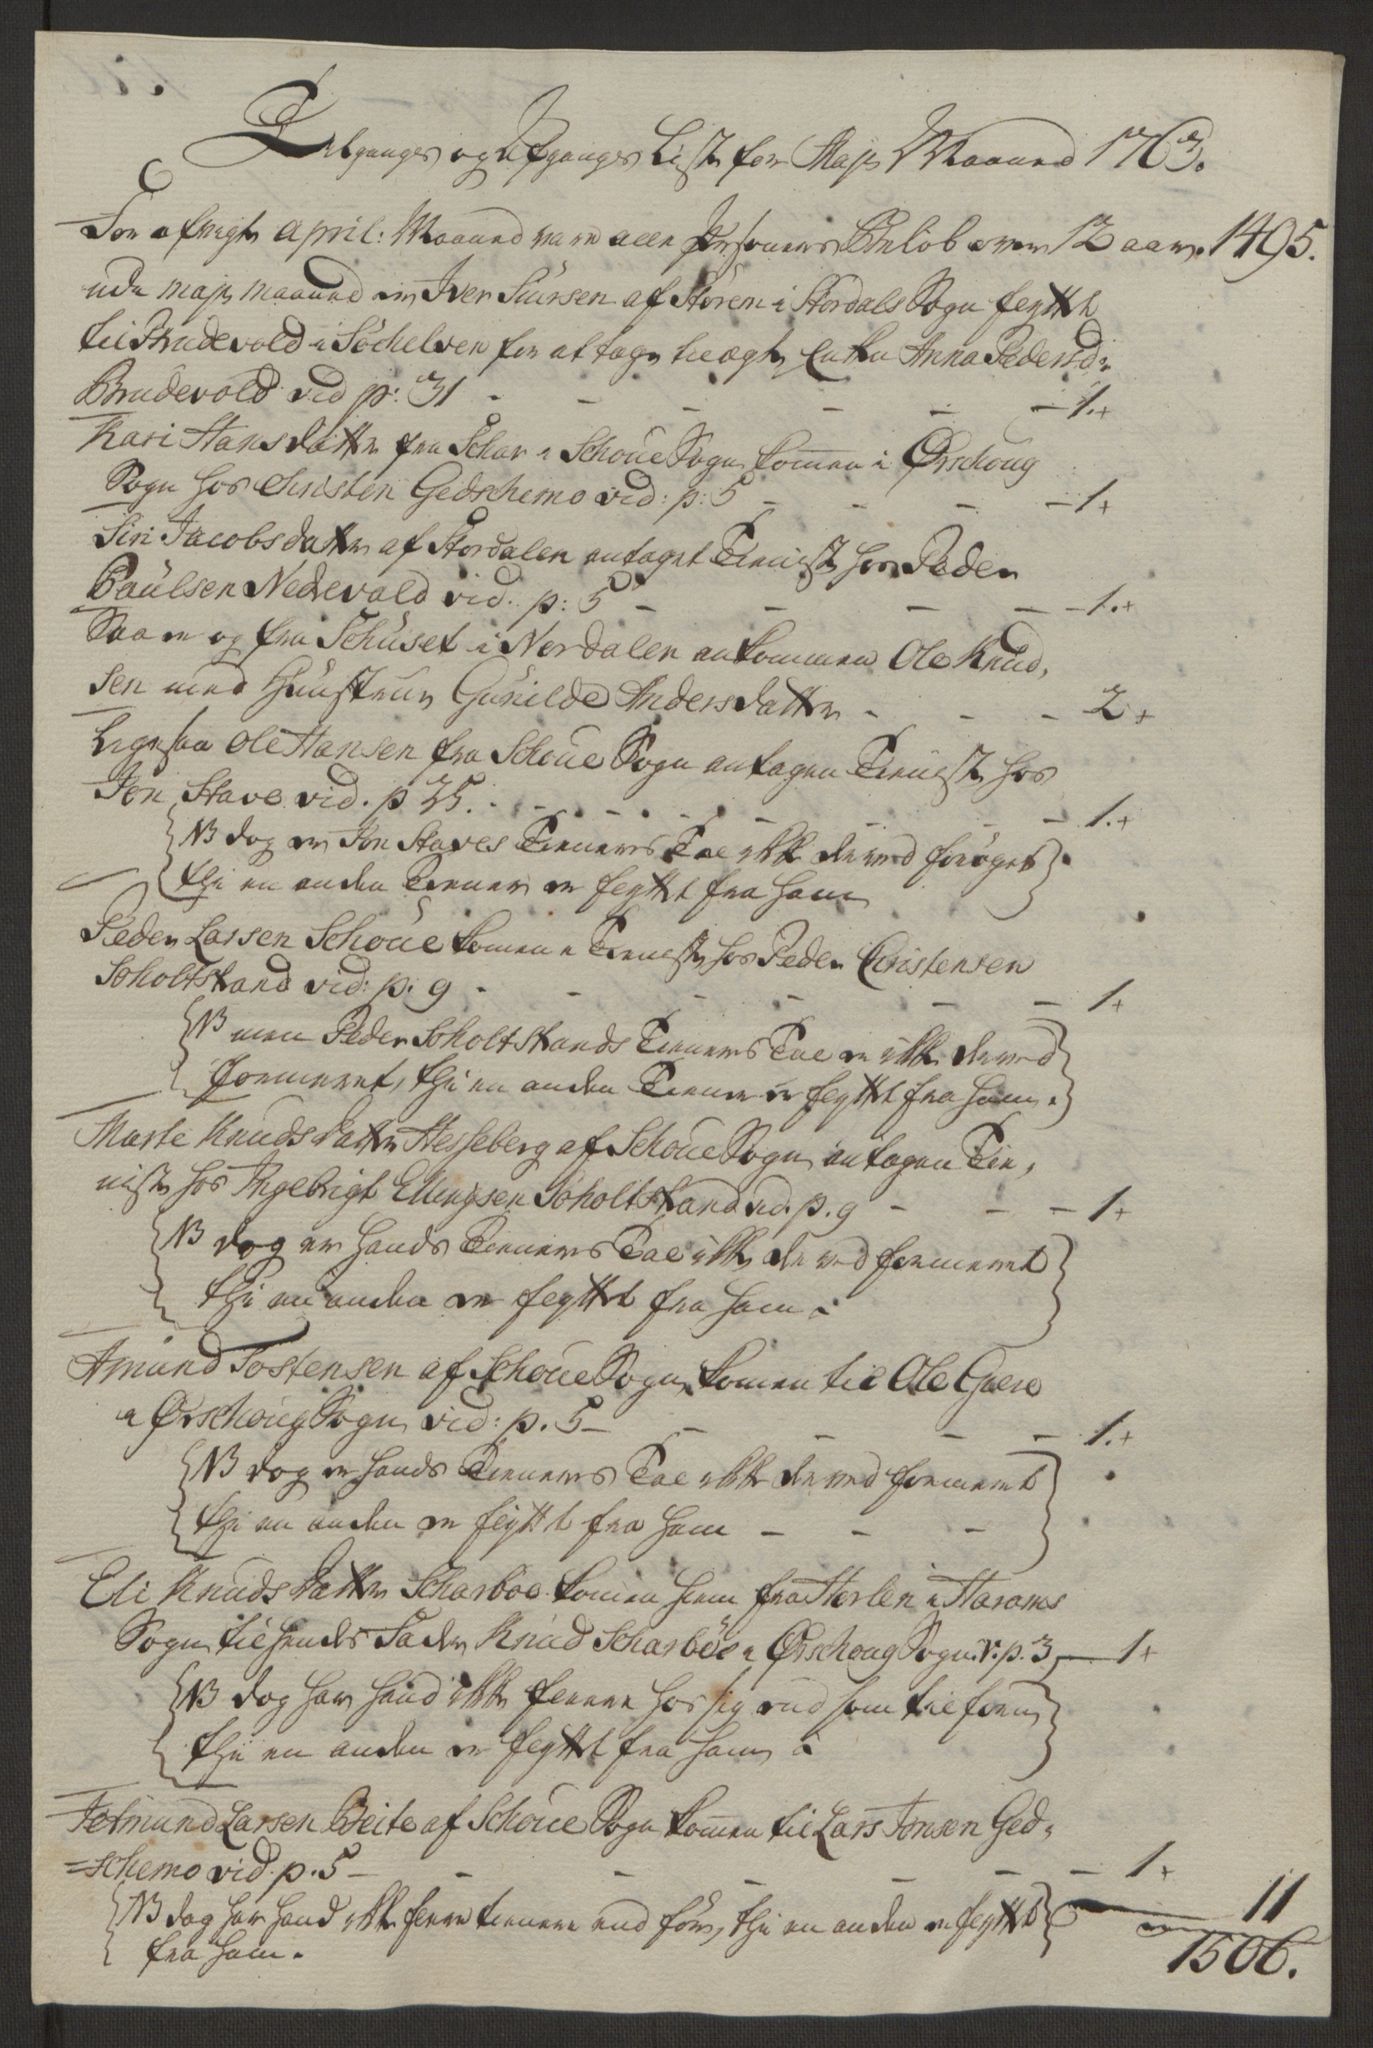 Tilganges og Afganges List for Maji Maaned 1763.
For afvigte April: Maaned vare alle Personers Beløb over 12 aar. 1495.
udi maji maaned er Iver Siursen af Støren i Stordals Sogn flyttet
til Brudevold i Söchelven for at tage til ægte Enke Anna Pedersd:
Brudevold vid p: 31 - - - - - 1.+
Kari Hansdatter fra Schar i Schoue Sogn kommen i Ørschoug
Sogn hos Christen Gedschemo vid: p: 5 - - - 1+
Siri Jacobsdatter af Stordalen antaget Tieniste hos Peder
Paulsen Nedrevold vid. p: 5 - - - - 1.+
Saa er og fra Schuset i Nordalen ankommen Ole Knud,
sen med Hustrue Gunilde Andersdatter - - - 2+
Ligesaa Ole Hansen fra Schoue Sogn antagen Tieniste hos
Jon Stave vid. p 25. - - - - 1.+
NB dog er Jon Staves Tieneres Tal ikke derved forøget
thi en anden Tiener er flyttet fra ham
Peder Larsen Schoue komen i Tieniste hos Peder Christensen
Soholtstrand vid: p: 9 - - - - - 1+
NB men Peder Soholtstrands Tieneres Tal er ikke derved
formeret, thi en anden Tiener er flyttet fra ham.
Marte Knudsdatter Hesseberg af Schoue Sogn antagen Tie,
niste hos Ingebrigt Ellingsen Soholtstrand vid. p. 9 - - - 1+
NB dog er hands Tieneres Tal ikke derved formeret
thi en anden er flyttet fra ham.
Amund Tostensen af Schoue Sogn komen til Ole Giere
i Ørschoug Sogn vid: p. 5 - - - - - 1.+
NB dog er hands Tieneres Tal ikke derved formeret
thi en anden er flyttet fra ham - - -
Eli Knudsdatter Scharboe komen hiem fra Herlen i Harams
Sogn til hendes Fader Knud Scharböe i Ørschoug Sogn. v: p. 3, - 1+
NB dog har hand ikke fleere hos sig end som tilforn
thi en anden er flyttet fra ham
Jetmund Larsen Beite af Schoue Sogn kommen til Lars Jonsen Ged-
=schemo vid. p. 5 - - - - - - 1+
NB dog har hand ikke fleere tienere end før, thi en anden er flyttet 11
fra ham. 1506.